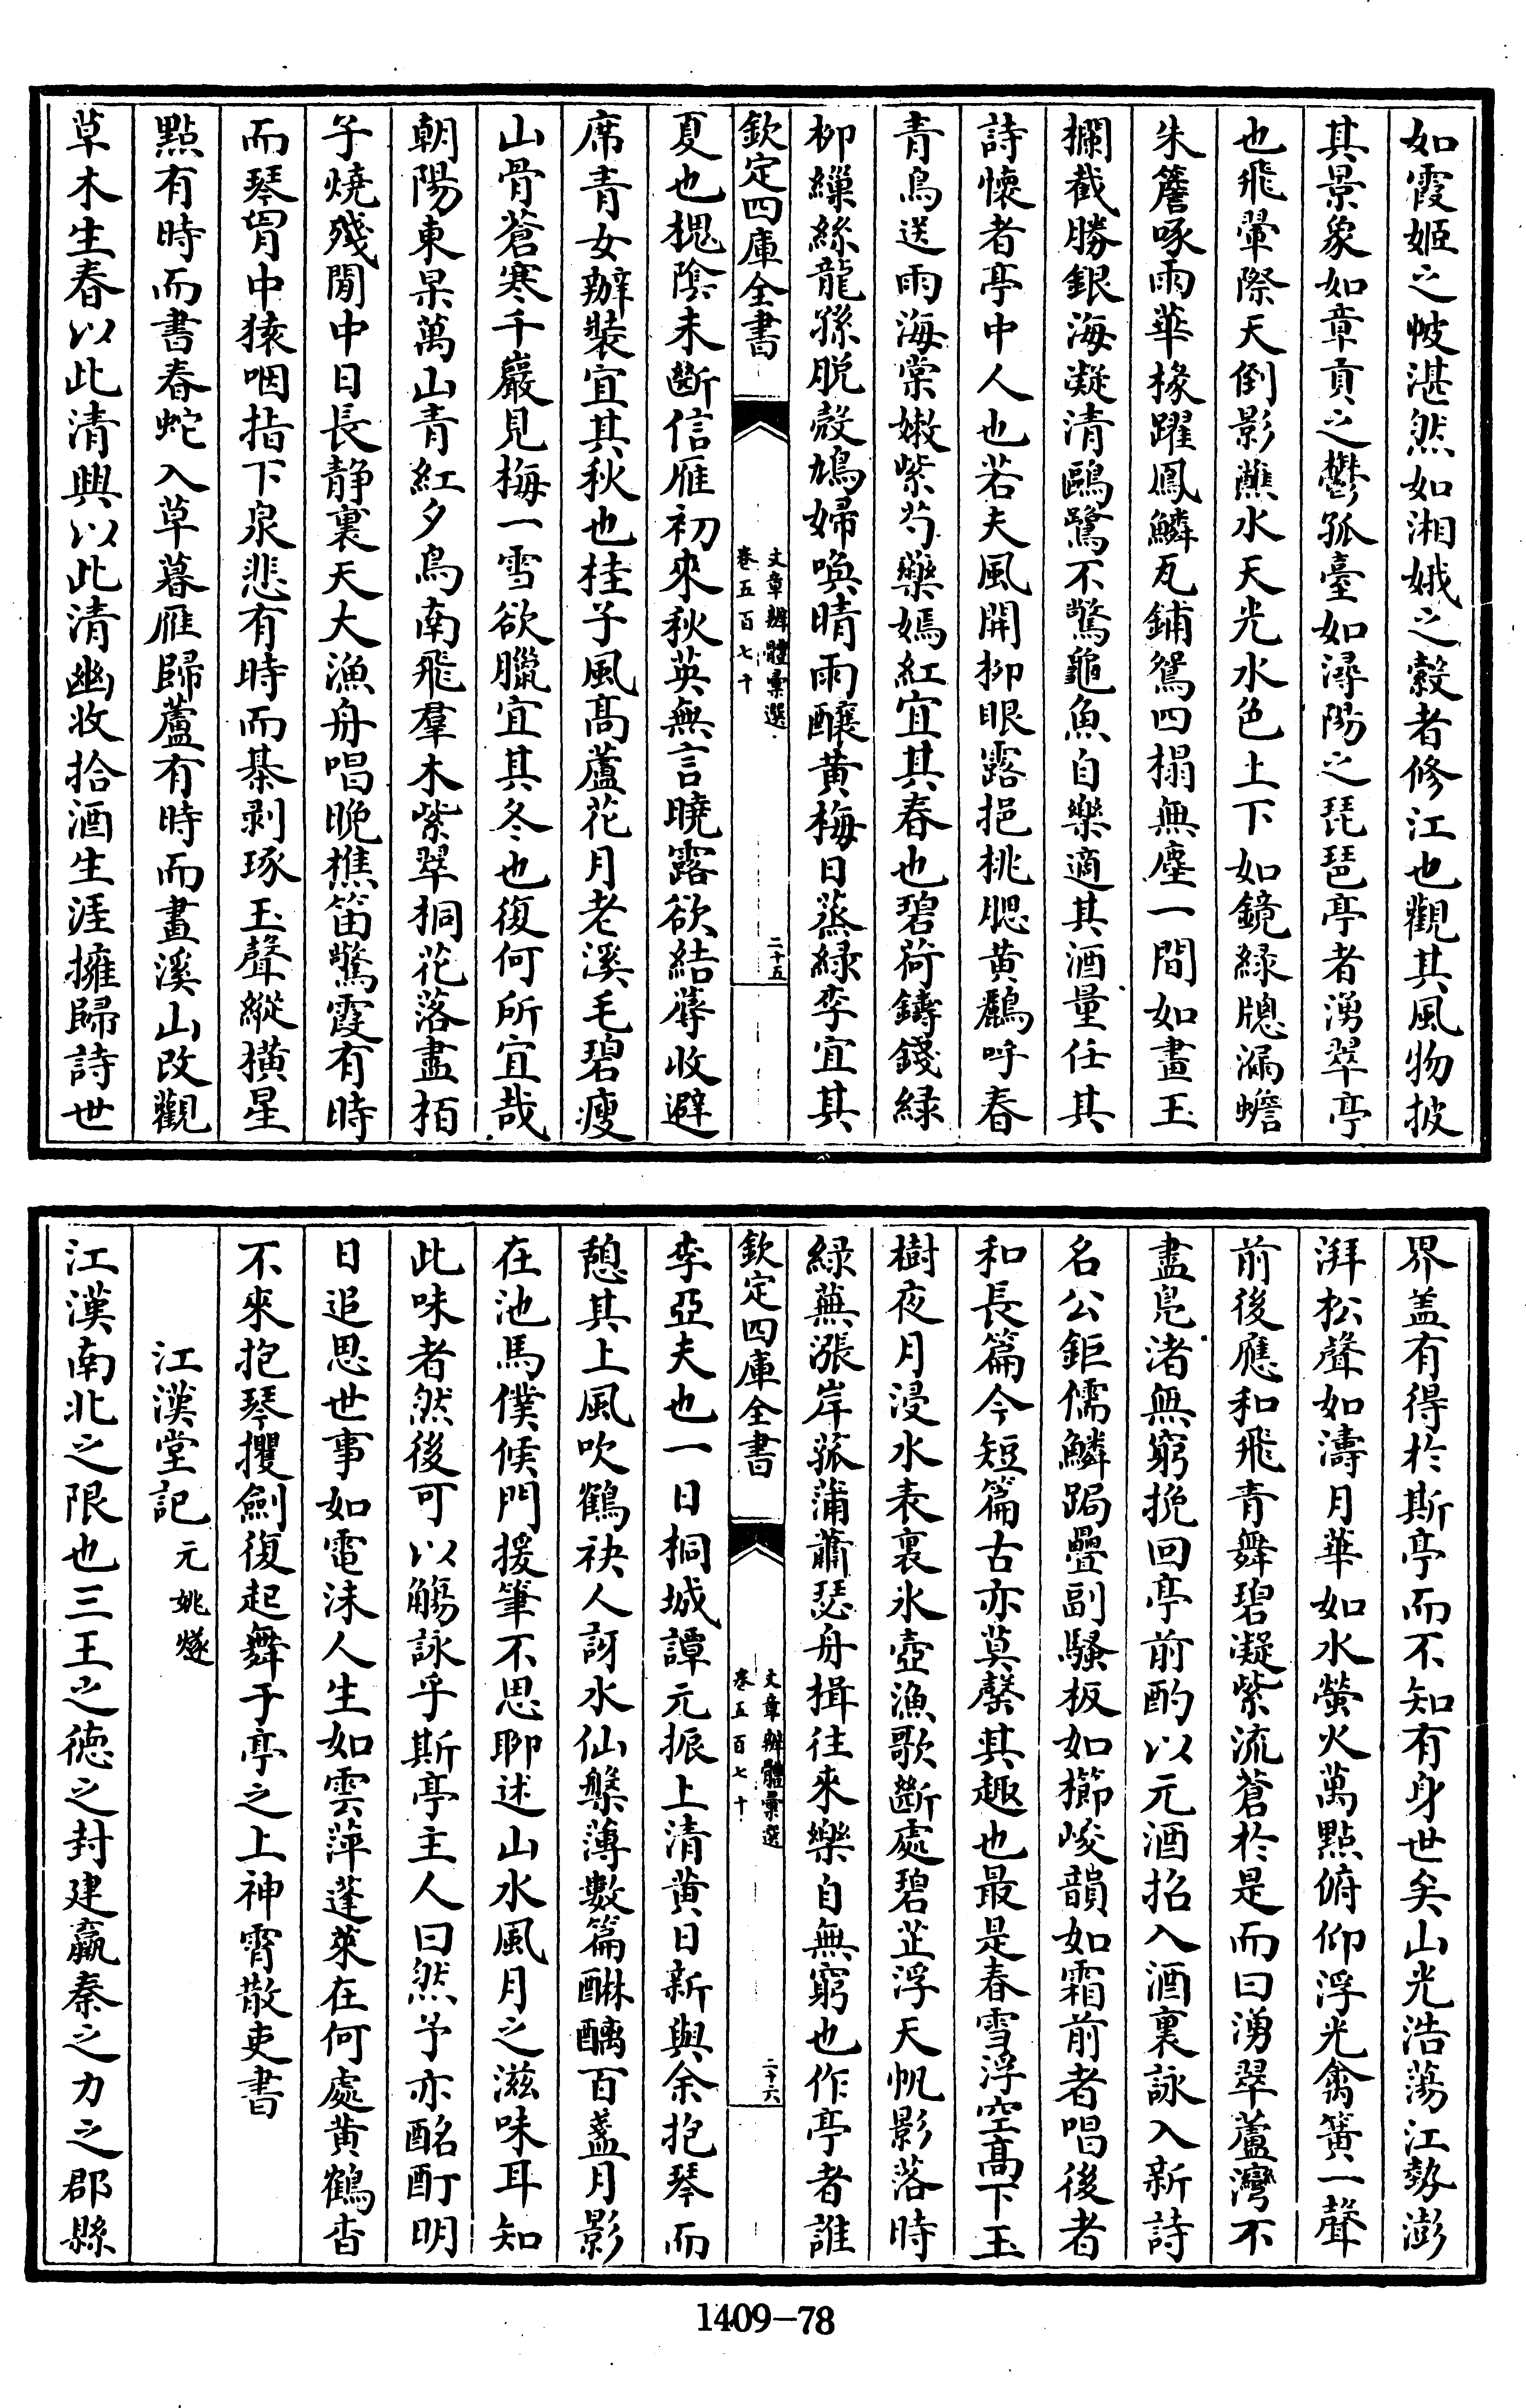 如霞姬之帔湛然如湘娥之縠者修江也觀其風物披
其景象如章貢之鬱孤臺如潯陽之琵琶亭者湧翠亭
也飛翬際天倒影蘸水天光水色上下如鏡緑牕漏蟾
朱簷啄雨華椽躍鳳鱗瓦鋪鴛四榻無塵一間如畫玉
欄截勝銀海凝清鷗鷺不驚龜魚自樂適其酒量任其
詩懷者亭中人也若夫風開柳眼露挹桃腮黄鸝呼春
青鳥送雨海棠嫩紫芍藥嫣紅宜其春也碧荷鑄錢緑
柳繅絲龍孫脱殼鳩婦喚晴雨釀黄梅日蒸緑李宜其
欽定四庫全書
文章辨體彙選
卷五百七十
二十五
夏也槐陰未斷信雁初來秋英無言曉露欲結蓐收避
席青女辦裝宜其秋也桂子風髙蘆花月老溪毛碧瘦
山骨蒼寒千巖見梅一雪欲臘宜其冬也復何所宜哉
朝陽東杲萬山青紅夕鳥南飛羣木紫翠桐花落盡栢
子燒殘閒中日長静裏天大漁舟唱晩樵笛驚霞有時
而琴胷中猿咽指下泉悲有時而棊剥琢玉聲縱横星
點有時而書春蛇入草暮雁歸蘆有時而畫溪山改觀
草木生春以此清興以此清幽收拾酒生涯擁歸詩世
界盖有得於斯亭而不知有身世矣山光浩蕩江勢澎
湃松聲如濤月華如水螢火萬點俯仰浮光禽簧一聲
前後應和飛青舞碧凝紫流蒼於是而曰湧翠蘆灣不
盡鳬渚無窮挽回亭前酌以元酒招入酒裏詠入新詩
名公鉅儒鱗跼疊副騷板如櫛峻韻如霜前者唱後者
和長篇今短篇古亦莫罄其趣也最是春雪浮空高下玉
樹夜月浸水表裏氷壺漁歌斷處碧芷浮天帆影落時
緑蕪漲岸菰蒲蕭瑟舟楫往來樂自無窮也作亭者誰
欽定四庫全書
文章辨體彙選
卷五百七十
二十六
李亞夫也一日桐城譚元振上清黄日新與余抱琴而
憩其上風吹鶴袂人訝水仙槃薄數篇酣醨百盞月影
在池馬僕候門援筆不思聊述山水風月之滋味耳知
此味者然後可以觴詠乎斯亭主人曰然予亦酩酊明
日追思世事如電沫人生如雲萍蓬萊在何處黄鶴杳
不來抱琴攫劍復起舞于亭之上神霄散吏書
江漢堂記 元 姚燧
江漢南北之限也三王之徳之封建嬴秦之力之郡縣
1409-78